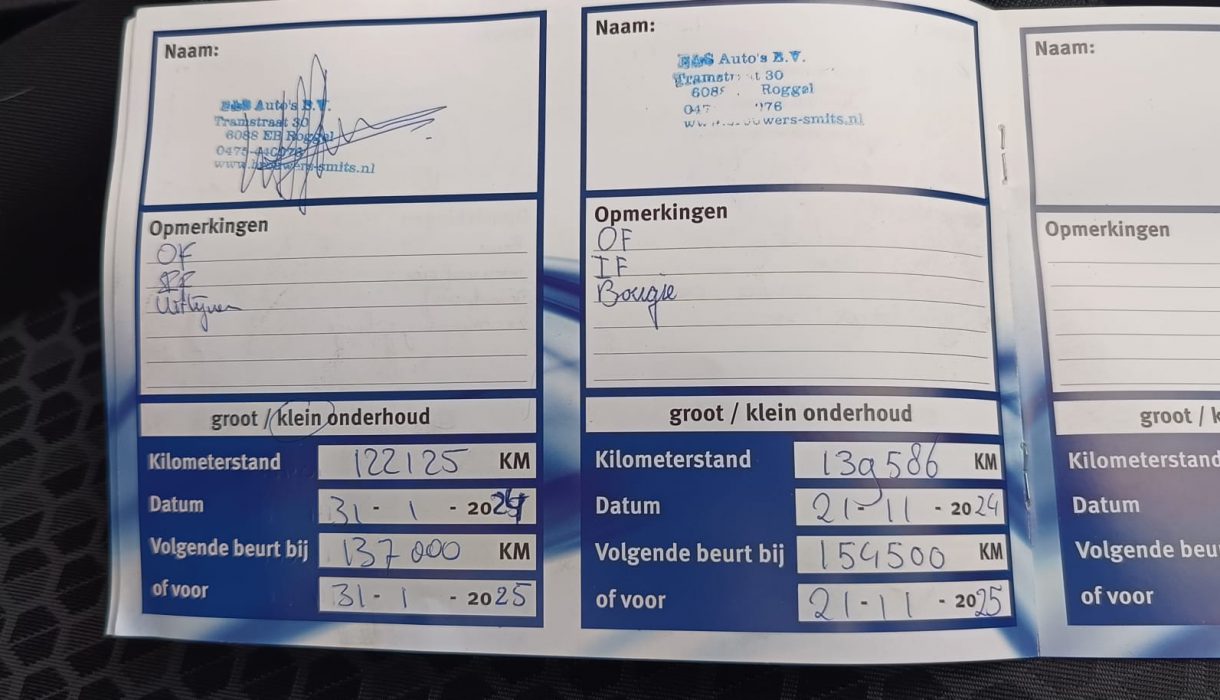 Naam:
B&S Auto's B.V.
Tramstraat 30
6088 EB Roggel
0475
www.brouwers-smits.nl
Opmerkingen
OF
Uitlijnen
groot / klein onderhoud
Kilometerstand 122125 KM
Datum 31 - 1 - 2024
Volgende beurt bij 137000 KM
of voor 31 - 1 - 2025
Naam:
Auto's B.V.
30
Roggel
047 976
wers-smits.nl
Opmerkingen
OF
IF
Bougie
groot / klein onderhoud
Kilometerstand 139586 KM
Datum 21 - 11 - 2024
Volgende beurt bij 154500 KM
of voor 21 - 11 - 2025
Naam:
Opmerkingen
groot / k
Kilometerstand
Datum
Volgende beu
of voor